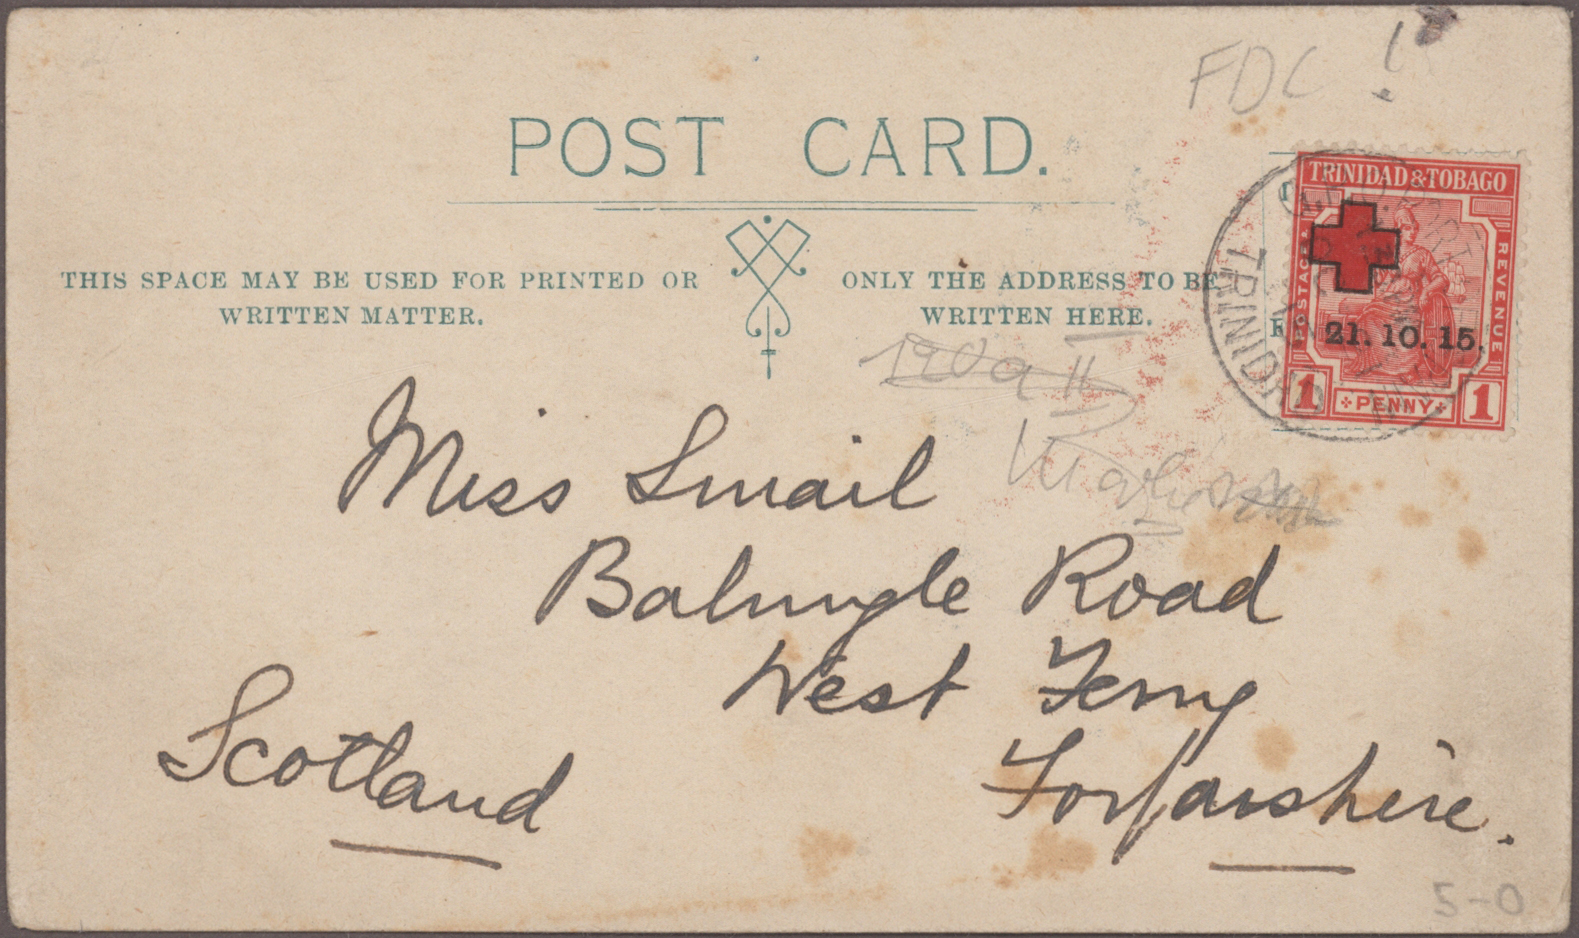 FDC !
POST CARD.
TRINIDAD & TOBAGO
POSTAGE &
REVENUE
21. 10. 15.
1 PENNY 1
TRINIDAD
THIS SPACE MAY BE USED FOR PRINTED OR
WRITTEN MATTER.
ONLY THE ADDRESS TO BE
WRITTEN HERE.
Miss Smail
Road
West Ferry
Forfarshire.
Scotland
5-0